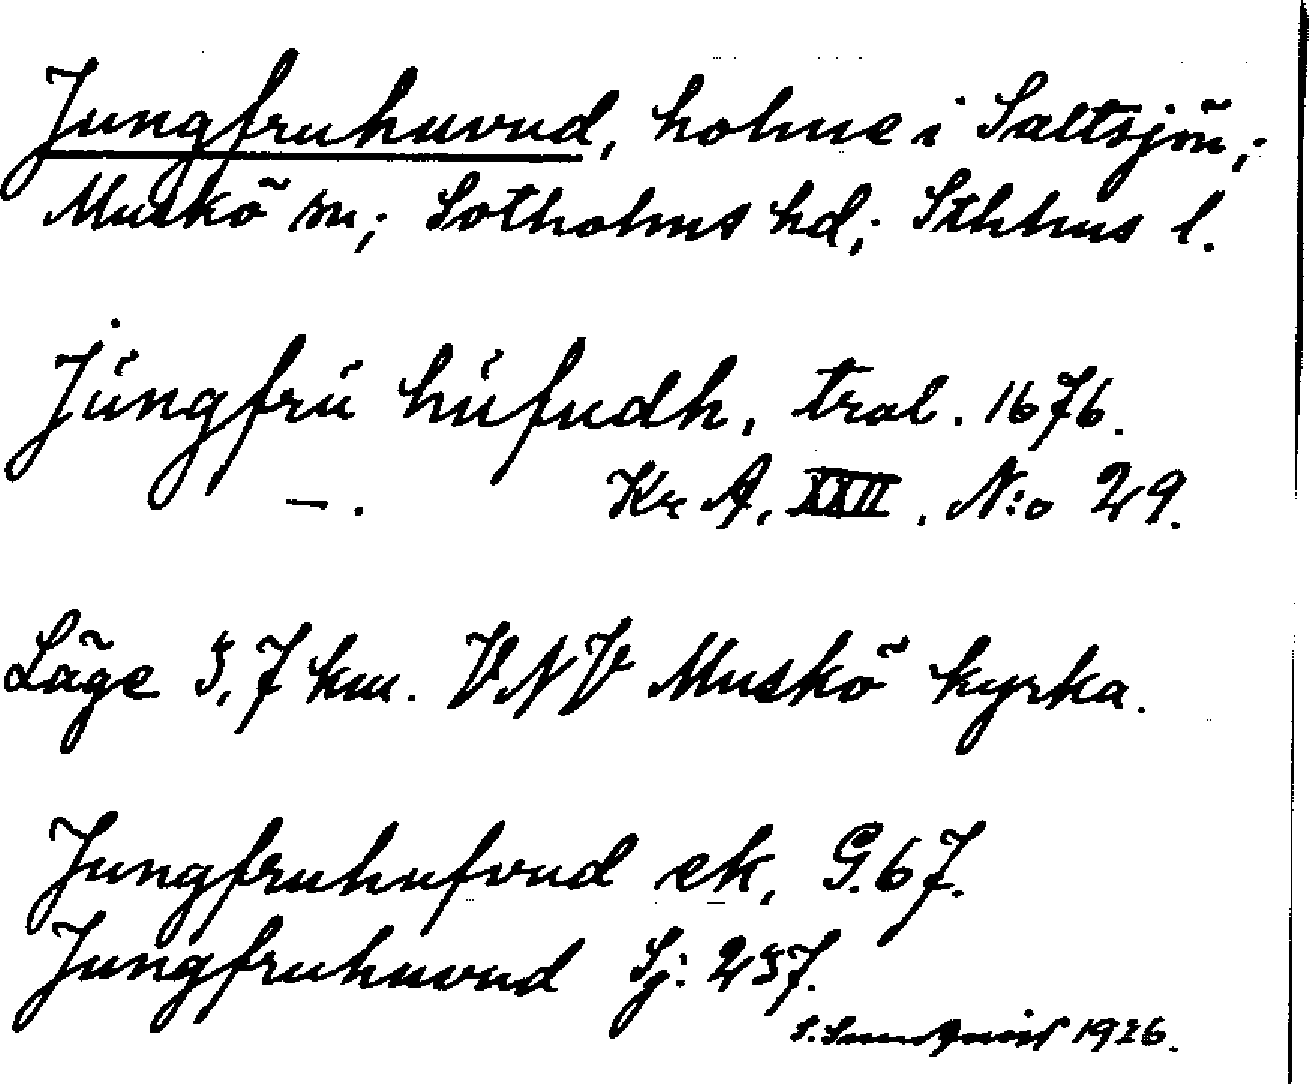 Jungfruhuvud, holme i Saltsjön,;
Muskö sn,; Sotholms hd,; Sthlms l.
Júngfrú húfudh, tral. 1676.
—. Kr A. XXII. N:o 29.
Läge 5,7 km. VNV Muskö kyrka.
Jungfruhufvud ek. G.67.
Jungfruhuvud Sj: 257.
S. 1926.